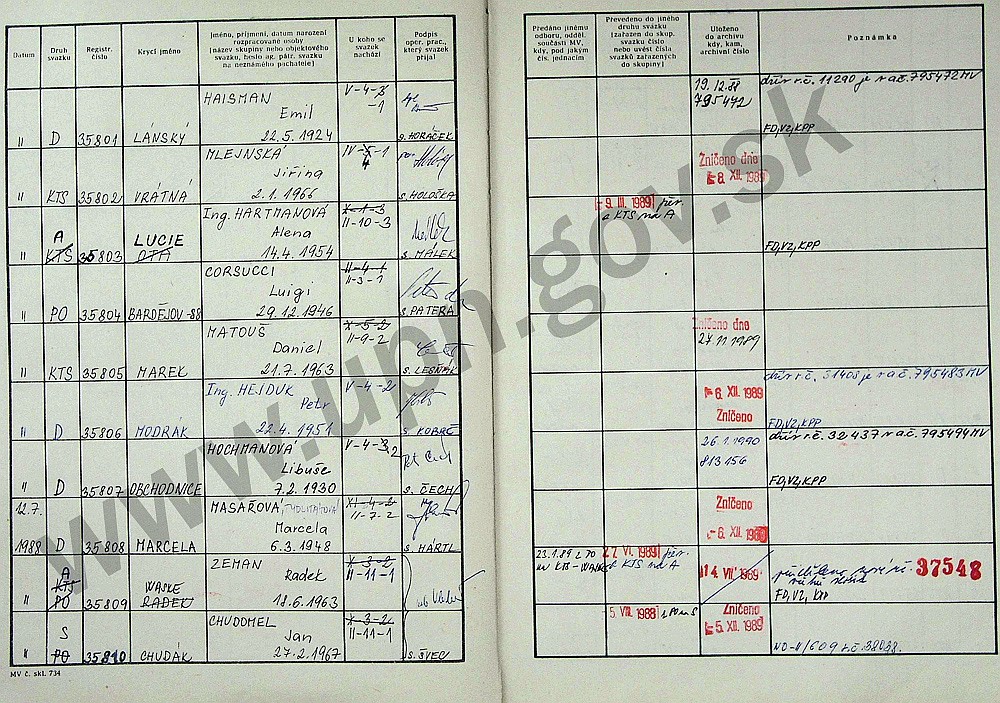 Datum
Druh svazku
Registr. číslo
Krycí jméno
Jméno, příjmení, datum narození
rozpracované osoby
(název skupiny nebo objektového
svazku, heslo ag. pátr. svazku
na neznámého pachatele)
U koho se
svazek
nachází
Podpis
oper. prac.,
který svazek
přijal
Předáno jinému
odboru, odděl.
součásti MV,
kdy, pod jakým
čís. jednacím
Převedeno do jiného
druhu svazku
(zařazen do skup.
svazku číslo
nebo uvést čísla
svazků zařazených
do skupiny)
Uloženo
do archivu
kdy, kam,
archivní číslo
Poznámka
HAISMAN
Emil
" D 35801 LÁNSKÝ 22.5.1924
s. HORÁČEK
19.12.88
795472
FD,VZ,KPP
MLEJNSKÁ
Jiřina
" KTS 35802 VRÁTNÁ 2.1.1966
s. HOLOŠKA
Zničeno dne
8. XII. 1989
Ing. HARTMANOVÁ X-1-3
II-10-3
A LUCIE Alena
" KTS 35803 OTA 14.4.1954
s. MÁLEK
9. III. 1989 per.
z KTS na A
FD,VZ,KPP
CORSUCCI II-4-1
II-3-1
Luigi
" PO 35804 BARDĚJOV-88 29.12.1946
s. PATERA
MATOUŠ X-5-2
II-9-2
Daniel
" KTS 35805 MAREK 21.7.1963
s. LESŇÁK
Zničeno dne
27 11 1989
Ing. HEJDUK V-4-2
Petr
" D 35806 MODRÁK 22.4.1951
6. XII. 1989
Zničeno
FD,VZ,KPP
HOCHMANOVÁ
Libuše
" D 35807 OBCHODNICE 7.2.1930
s. ČECH
26.1.1990
813156
FD,VZ,KPP
12.7. MASAŘOVÁ, XI-4-2
II-7-2
Marcela
1988 D 35808 MARCELA 6.3.1948
s. HÁRTL
Zničeno
6. XII. 1989
ZEMAN X-3-2
II-11-1
A
KTS Radek
" PO 35809 RADEK 18.6.1963
VI. 1989 per.
z KTS na A
14. VII. 1989
37548
FD,VZ,KPP
CHUDOMEL X-3-2
II-11-1
S Jan
" PO 35810 CHUDÁK 27.2.1967
s. ŠVEC
5. VIII. 1988 z PO na S
Zničeno
5. XII. 1989
MV č. skl. 734
www.upn.gov.sk